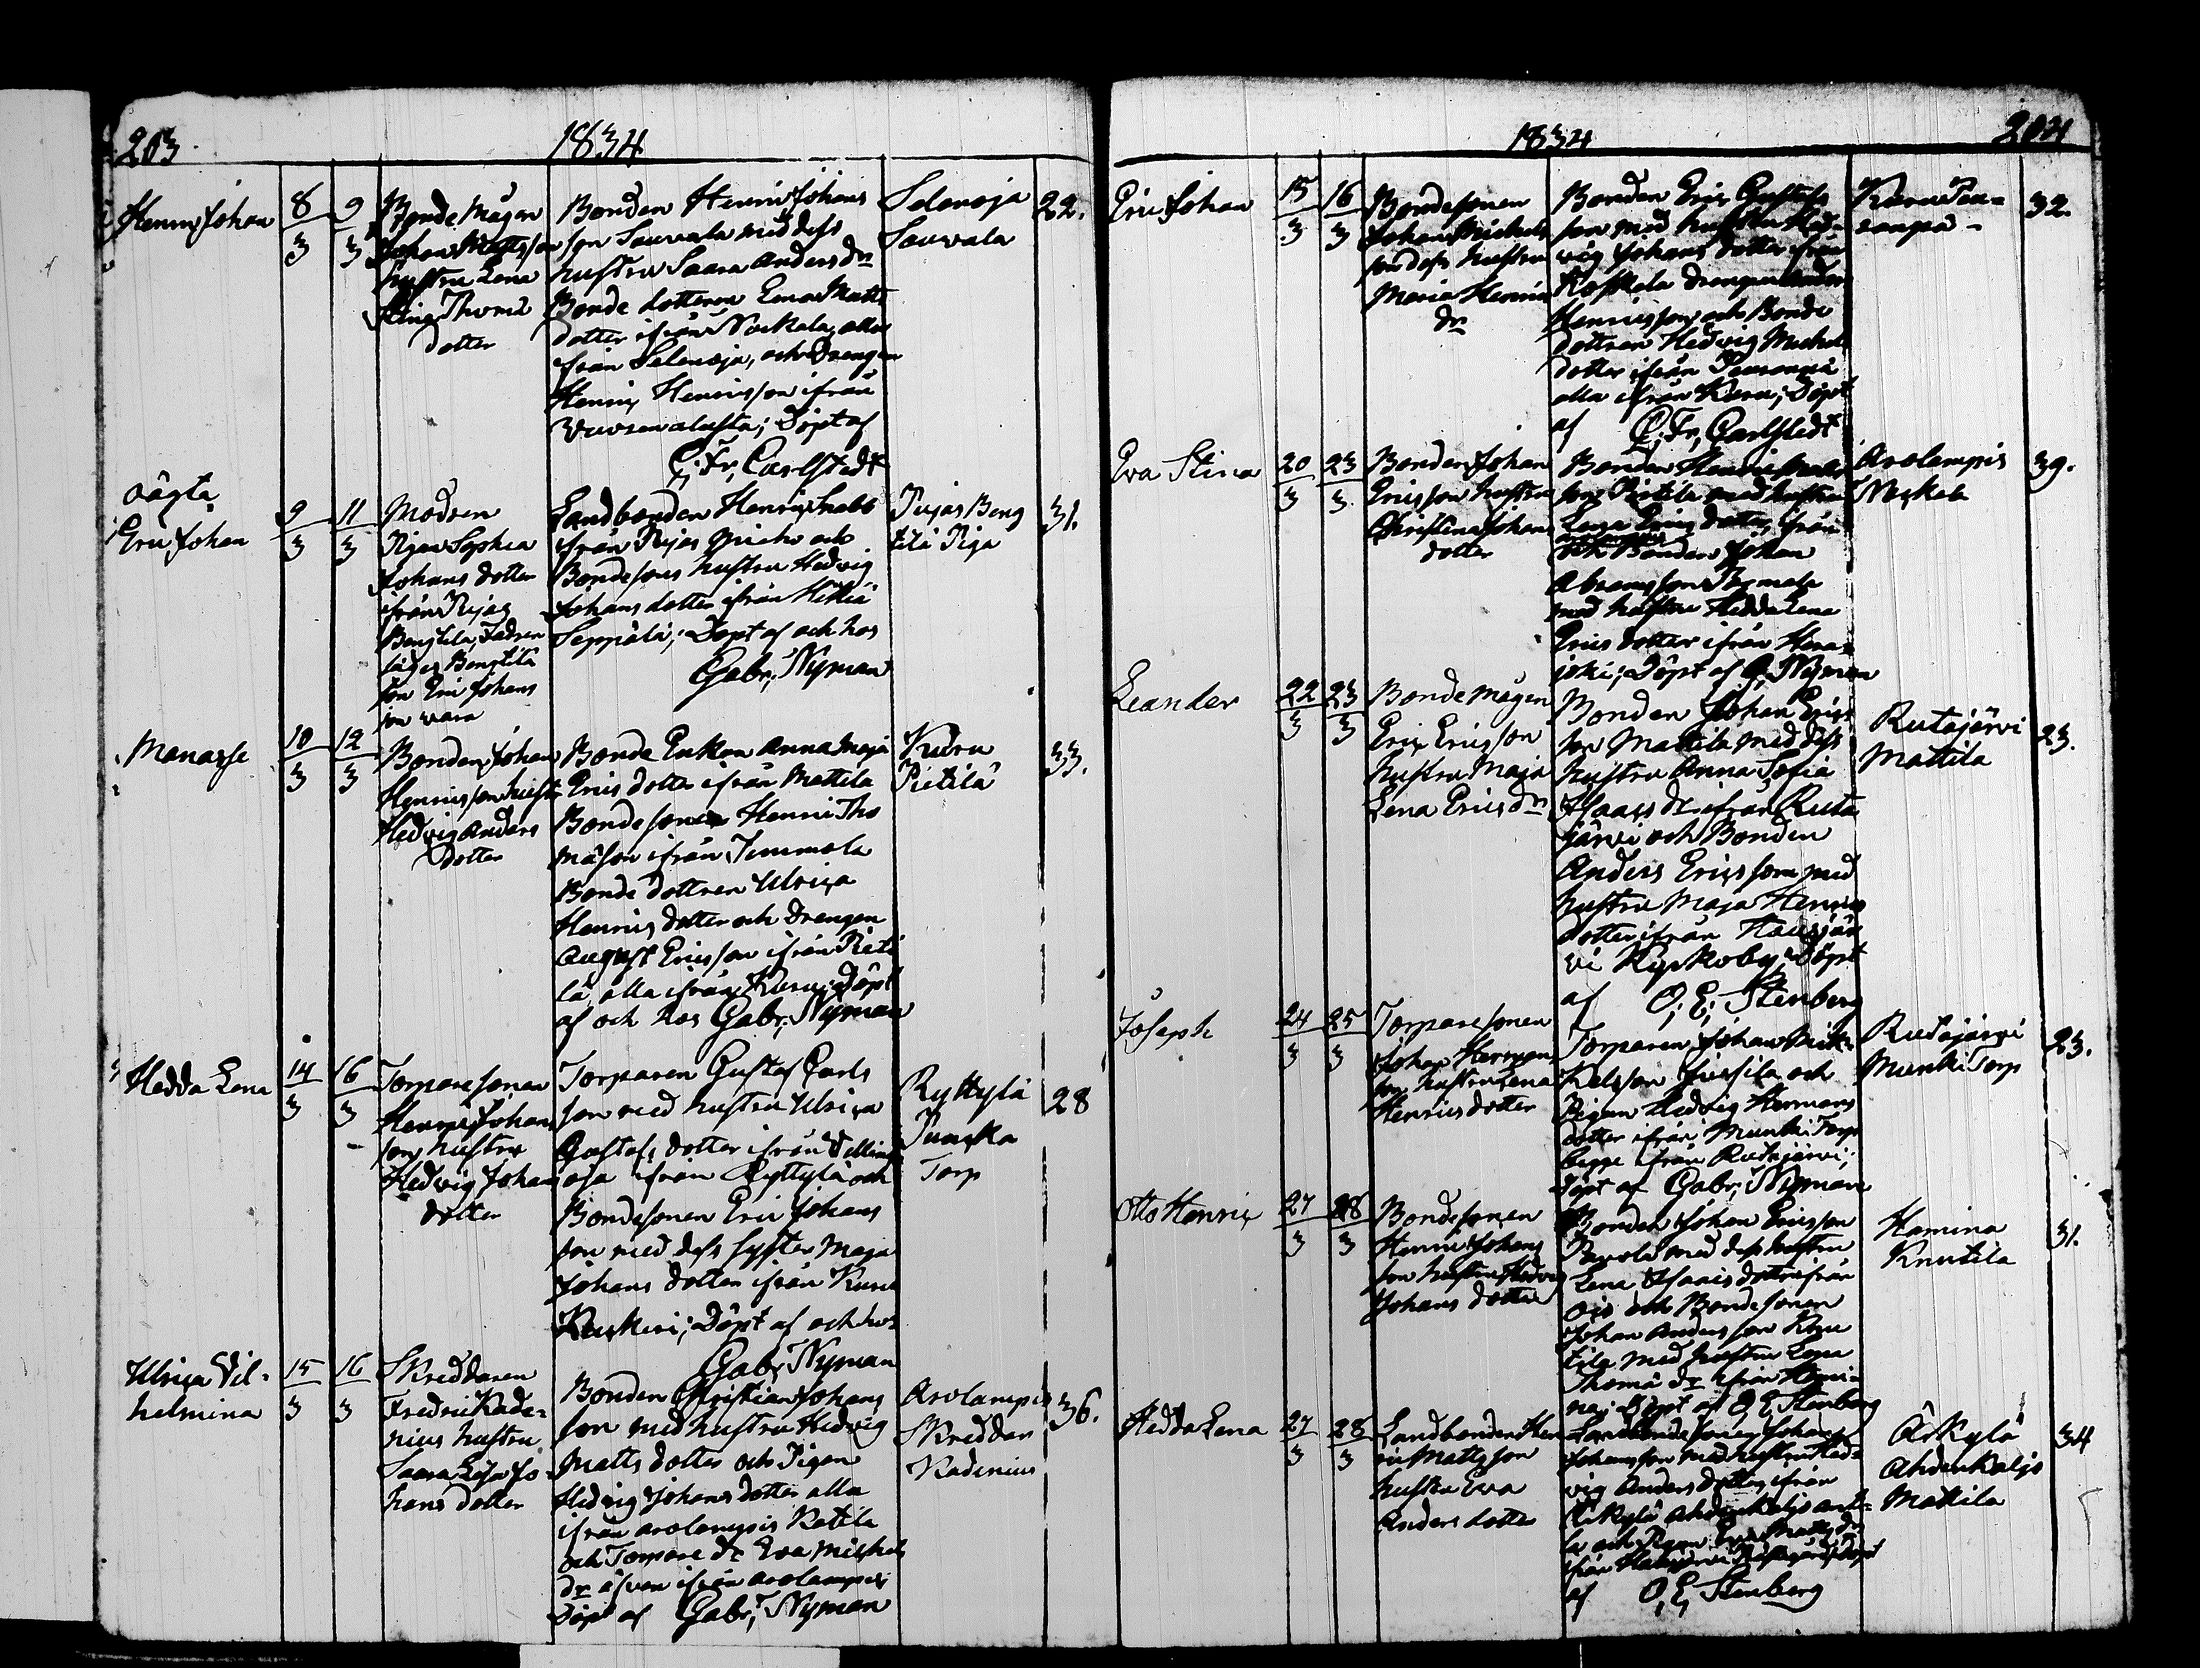 203
1834
Henric Johan
8/3
9/3
Bonde Mågen
Johan Mattsson
hustru Lena
Stina Thomæ
dotter
Bonden Henric Johans
son Sauvala med dess
hustru Saara Anders dr
Bonde dotteren Lena Matts
dotter ifrån Nockala alla
ifrån Selenoja, och Drengen
Henric Henricsson ifrån
Vuorenalusta; Döpt af
C. Fr. Carlstedt
Selenoja
Sauvala
22.
oägta
Eric Johan
9/3
11/3
Modren
Pigan Sophia
Johans dotter
ifrån Pujas
Bengtila, Fadren
säges Bengtila
son Eric Johans
son vara
Landbonden Henric Snabb
ifrån Pujas och
Bondesons hustru Hedvig
Johans dotter ifrån Hikiä
Seppälä; Döpt af och hos
Gabr. Nyman
Pujas Beng
tilä Piga
31.
Manasse
10/3
12/3
Bonden Johan
Henricsson hustr
Hedvig Anders
dotter
Bonde Enkan Anna Maja
Erics dotter ifrån Mattila
Bondesonen Henric Tho
mäson ifrån Jummola
Bonde dottren Ulrica
Henrics dotter och Drengen
August Ericsson ifrån Pieti
lä, alla ifrån Kuru; Döpt
af och hos Gabr. Nyman
Kuru
Pietilä
33.
Hedda Lena
14/3
16/3
Torparesonen
Henric Johans
son hustru
Hedvig Johans
dotter
Torparen Gustaf Carls
son med hustru Ulrica
Gustafs dotter ifrån
oja ifrån Ryttylä och
Bondesonen Eric Johans
son med dess syster Maja
Johans dotter ifrån Kuru
Keskeri; Döpt af och hos
Gabr. Nyman
Ryttylä
Punska
Torp
28
Ulrica Vil-
helmina
15/3
16/3
Skreddaren
Fredric Rade-
nius hustru
Saara Lisa Jo-
hans dotter
Bonden Christian Johans
son med hustru Hedvig
Matts dotter och Pigan
Hedvig Johans dotter alla
ifrån Arolampis Ratila
och Torpare dr Eva Michels
dr äfven ifrån Arolampis;
Döpt af Gabr. Nyman
Arolampis
Skreddar
Radenius
36.
1834
204
Eric Johan
15/3
16/3
Bondesonen
Johan Michels
son dess hustru
Maria Henrics
dr
Bonden Eric Gustafs
son med hustru Hed-
vig Johans dotter ifrån
Koskela Drengen Anders
Henricsson och Bonde
dottren Hedvig Michels
dotter ifrån Penranpä
alla ifrån Karu; Döpt
af C. Fr. Carlstedt
32.
Eva Stina
20/3
23/3
Bonden Johan
Ericsson hustru
Christina Johans
dotter
Bonden Henric Matts
son Pietilä med hustru
Erics dotter ifrån
Arolampis
och Bonden Johan
Abramsson
med hustru Hedda Lena
Erics dotter ifrån Hera-
joki; Döpt af G. Nyman
Arolampis
39.
Leander
22/3
23/3
Bonde Mågen
Eric Ericsson
hustru Maja
Lena Erics dr
Bonden Johan Erics
son Mattila med dess
hustru Anna Sofia
Isaacs dr ifrån Ruta
järvi och Bonden
Anders Ericsson med
hustru Maja Henrics
dotter ifrån Hausjär
vi Kyrkoby; Döpt
af O. E. Stenberg
Rutajärvi
Mattila
23.
Joseph
24/3
25/3
Torparesonen
Johan Herman
son hustru Lena
Henrics dotter
Torparen Johan Mik-
kelsson och
Pigan Hedvig Hermans
dotter ifrån Munki Torp
begge ifrån Rutajärvi;
Döpt af Gabr. Nyman
Rutajärvi
Munki Torp
23.
Otto Henric
27/3
28/3
Bondesonen
Henric Johans
son hustru Hedvig
Johans dotter
Bonden Johan Ericsson
med dess hustru
Lena Isaacs dotter ifrån
Ois och Bondesonen
Johan Andersson Knu
tila med hustru Lena
Thomä dr ifrån Hami-
na; Döpt af O E Stenberg
Hamina
Knutila
31.
Hedda Lena
27/3
28/3
Landbonden Hen
ric Mattsson
hustru Eva
Anders dotter
Landbondesonen Johan
Johansson med hustru Hed-
vig Anders dotter ifrån
Erkylä
och Pigan Eva Matts dr
ifrån Hausjärvi Döpt
af O. E. Stenberg
Erkylä
Ahdenkaljo
Mattila
34